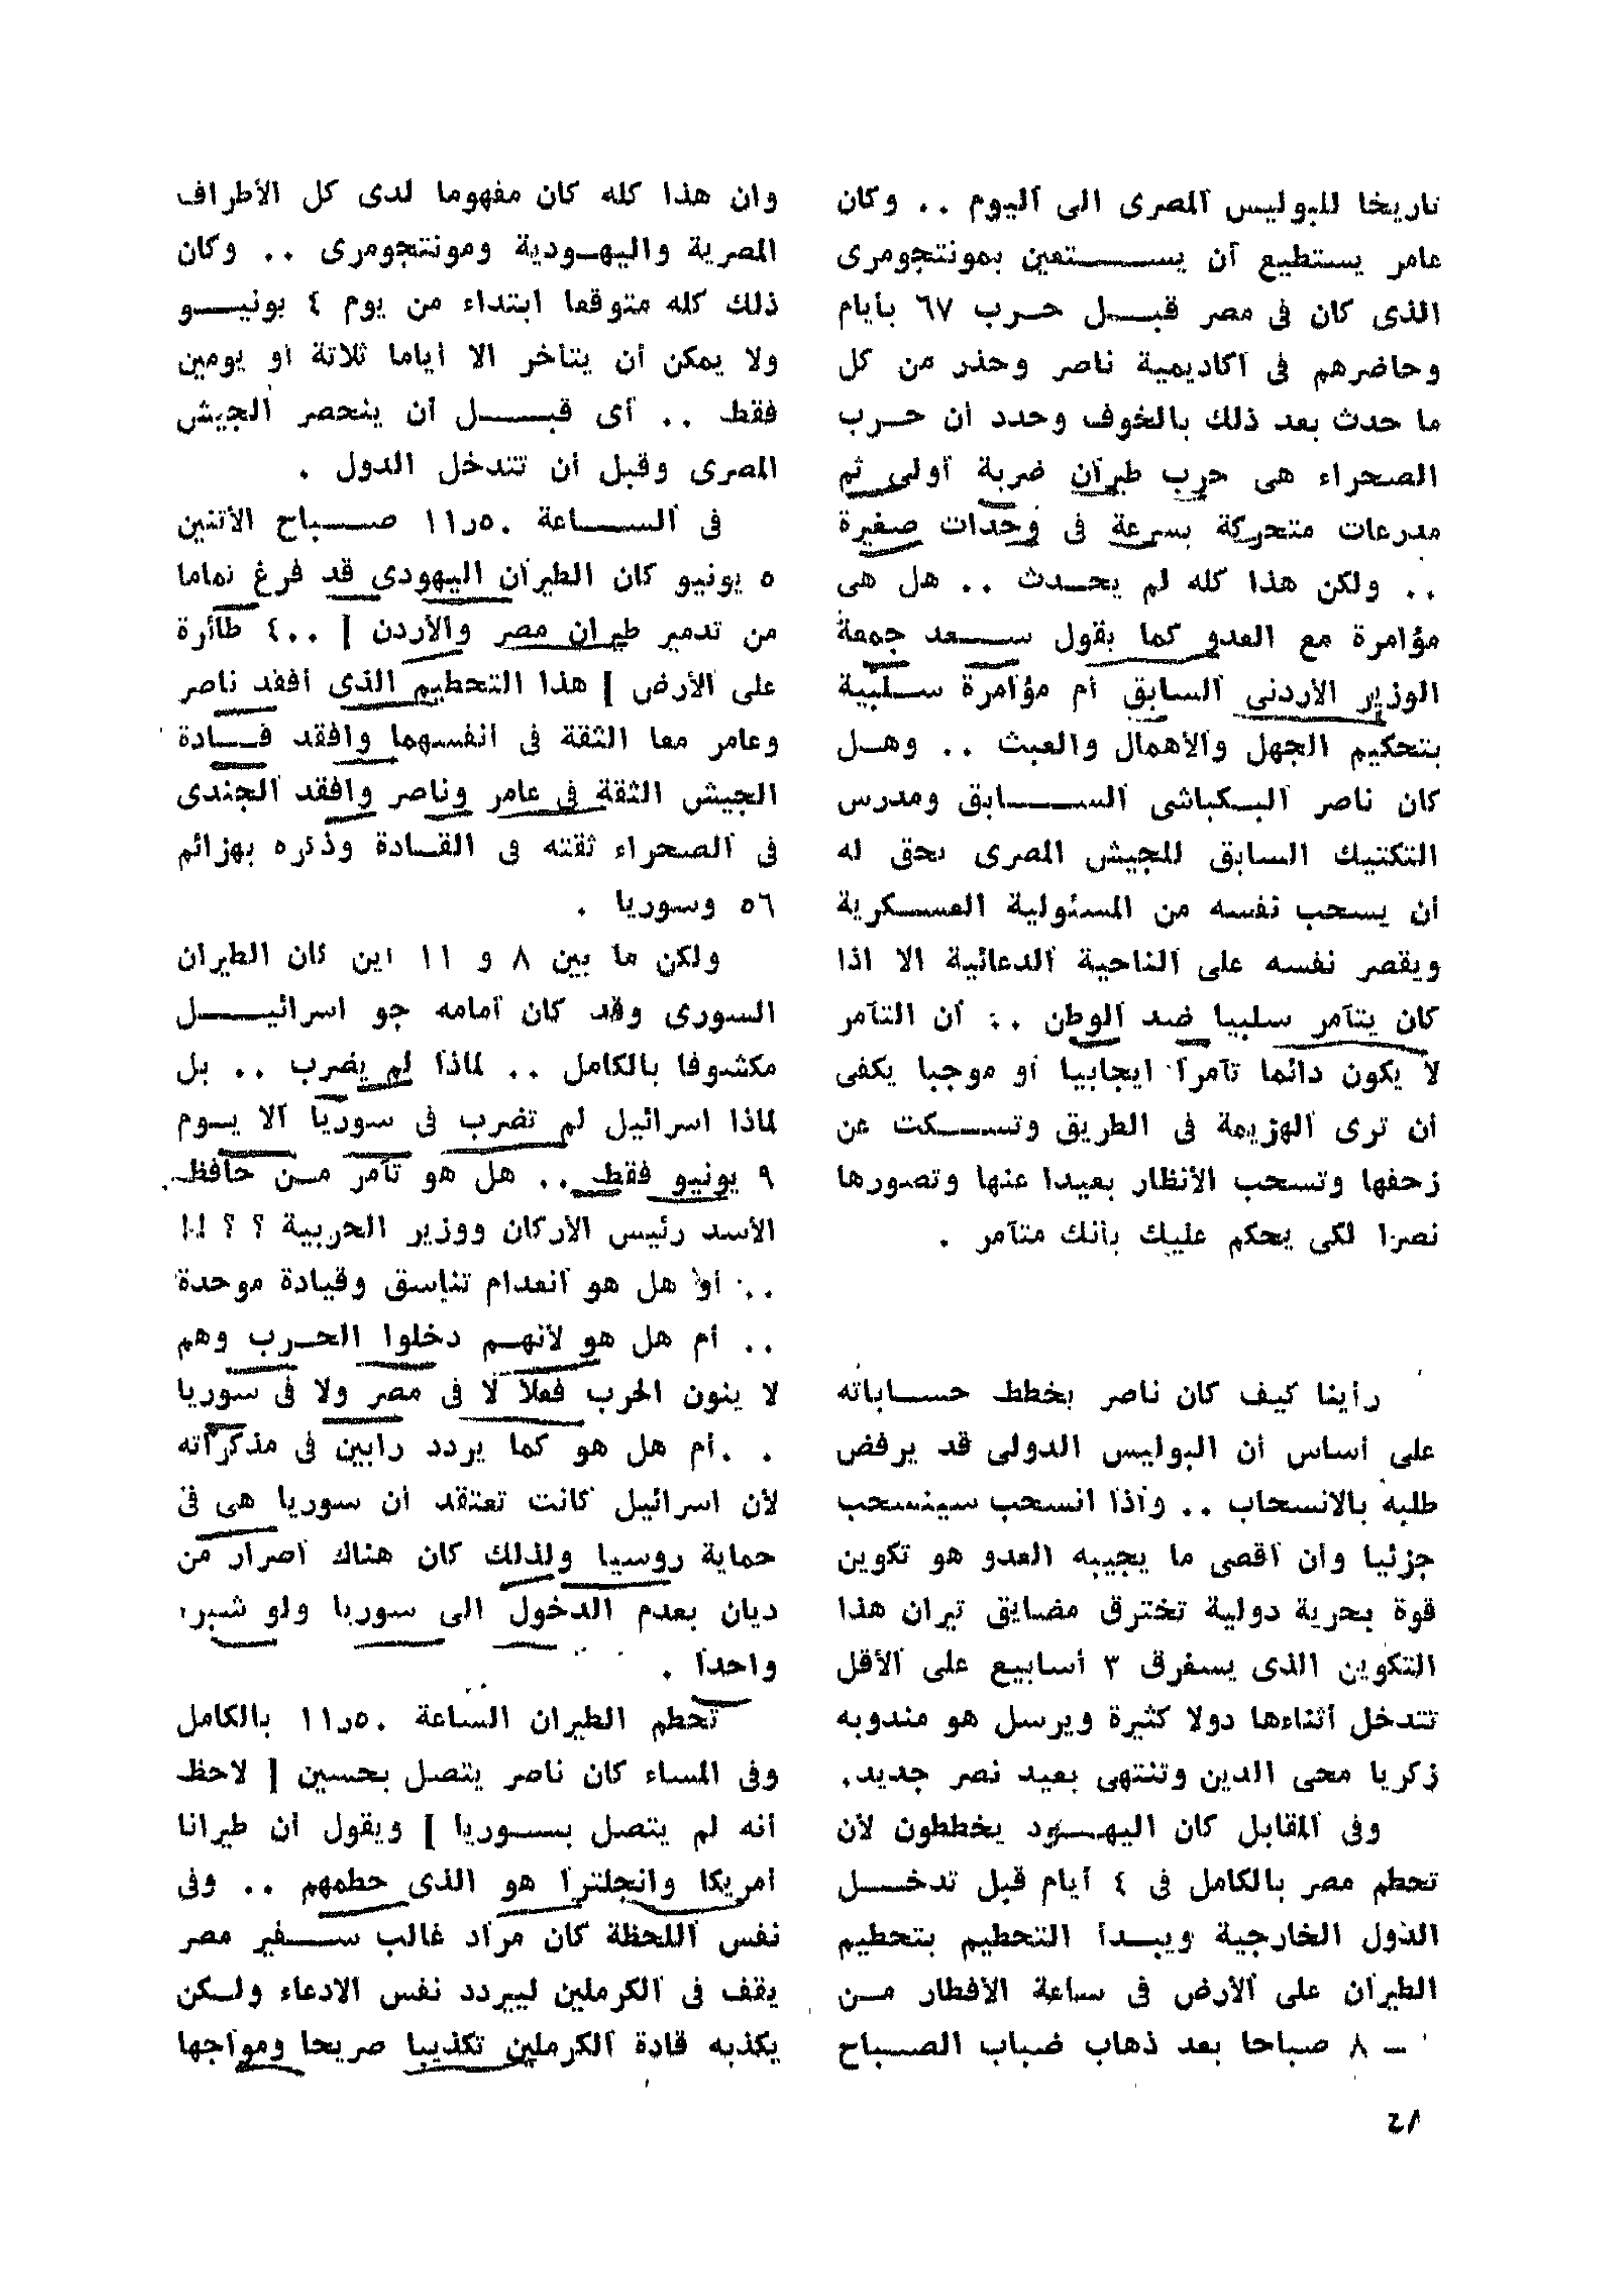 تاريخا للبوليس المصرى الى اليوم .. وكان
عامر يستطيع أن يستعين بمونتجومرى
الذى كان فى مصر قبل حرب ٦٧ بأيام
وحاضرهم فى أكاديمية ناصر وحذر من كل
ما حدث بعد ذلك بالخوف وحدد أن حرب
الصحراء هى حرب طيران ضربة أولى ثم
مدرعات متحركة بسرعة فى وحدات صغيرة
.. ولكن هذا كله لم يحدث .. هل هى
مؤامرة مع العدو كما يقول سعد جمعة
الوزير الأردنى السابق أم مؤامرة سلبية
بتحكيم الجهل والأهمال والعبث .. وهل
كان ناصر البكباشى السابق ومدرس
التكتيك السابق للجيش المصرى يحق له
أن يسحب نفسه من المسئولية العسكرية
ويقصر نفسه على الناحية الدعائية الا اذا
كان يتآمر سلبيا ضد الوطن .. أن التآمر
لا يكون دائما تآمرا ايجابيا أو موجبا يكفى
أن ترى الهزيمة فى الطريق وتسكت عن
زحفها وتسحب الأنظار بعيدا عنها وتصورها
نصرا لكى يحكم عليك بأنك متآمر .
رأينا كيف كان ناصر يخطط حساباته
على أساس أن البوليس الدولى قد يرفض
طلبه بالانسحاب .. وأذا انسحب سينسحب
جزئيا وأن أقصى ما يجيبه العدو هو تكوين
قوة بحرية دولية تخترق مضايق تيران هذا
التكوين الذى يسفرق ٣ أسابيع على الأقل
تتدخل أثناءها دولا كثيرة ويرسل هو مندوبه
زكريا محى الدين وتنتهى بعيد نصر جديد.
وفى المقابل كان اليهود يخططون لأن
تحطم مصر بالكامل فى ٤ أيام قبل تدخل
الدول الخارجية ويبدأ التحطيم بتحطيم
الطيران على الأرض فى ساعة الأفطار من
— ٨ صباحا بعد ذهاب ضباب الصباح
وان هذا كله كان مفهوما لدى كل الأطراف
المصرية واليهودية ومونتجومرى .. وكان
ذلك كله متوقعا ابتداء من يوم ٤ يونيو
ولا يمكن أن يتأخر الا أياما ثلاثة أو يومين
فقط .. أى قبل أن ينحصر الجيش
المصرى وقبل أن تتدخل الدول .
فى الساعة ١١٫٥٠ صباح الأثنين
٥ يونيو كان الطيران اليهودى قد فرغ تماما
من تدمير طيران مصر والأردن [ ٤٠٠ طائرة
على الأرض ] هذا التحطيم الذى أفقد ناصر
وعامر معا الثقة فى أنفسهما وأفقد قادة
الجيش الثقة فى عامر وناصر وأفقد الجندى
فى الصحراء ثقته فى القادة وذكره بهزائم
٥٦ وسوريا .
ولكن ما بين ٨ و ١١ أين كان الطيران
السورى وقد كان أمامه جو اسرائيل
مكشوفا بالكامل .. لماذا لم يضرب .. بل
لماذا اسرائيل لم تضرب فى سوريا الا يوم
٩ يونيو فقط .. هل هو تآمر من حافظ
الأسد رئيس الأركان ووزير الحربية ؟ ؟ !!
.. أو هل هو أنعدام تناسق وقيادة موحدة
.. أم هل هو لأنهم دخلوا الحرب وهم
لا ينون الحرب فعلا لا فى مصر ولا فى سوريا
. .أم هل هو كما يردد رابين فى مذكراته
لأن اسرائيل كانت تعتقد أن سوريا هى فى
حماية روسيا ولذلك كان هناك أصرار من
ديان بعدم الدخول الى سوريا ولو شبرا
واحدا .
تحطم الطيران الساعة ١١٫٥٠ بالكامل
وفى المساء كان ناصر يتصل بحسين [ لاحظ
أنه لم يتصل بسوريا ] ويقول أن طيرانا
أمريكا وانجلترا هو الذى حطمهم .. وفى
نفس اللحظة كان مراد غالب سفير مصر
يقف فى الكرملين ليبردد نفس الادعاء ولكن
يكذبه قادة الكرملين تكذيبا صريحا ومواجها